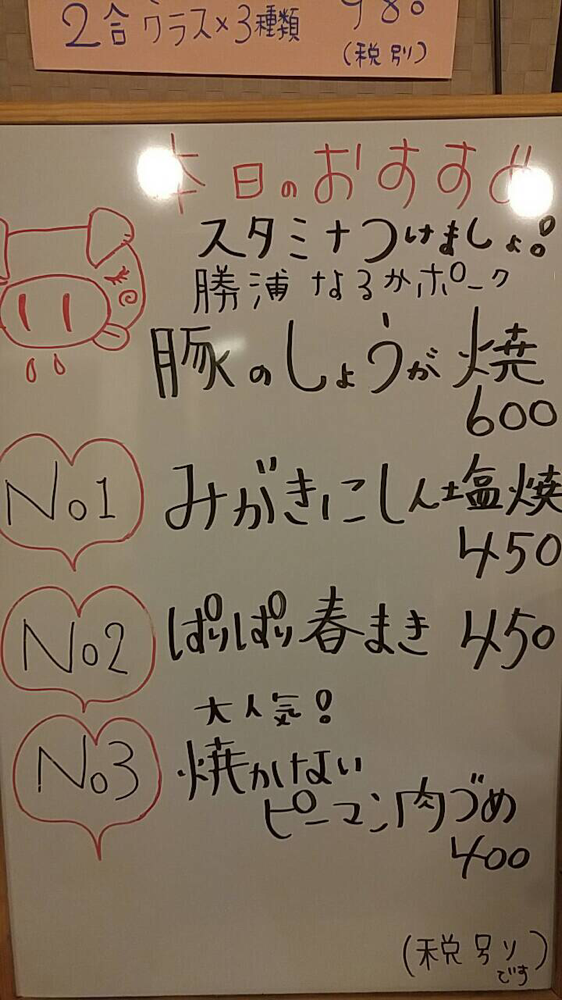 2合グラス×3種類 980
(税別)
本日のおすすめ
スタミナつけましょ!
勝浦なるかポーク
豚のしょうが焼
600
No1 みがきにしん塩焼
450
No2 ぱりぱり春まき 450
大人気!
No3 焼かけない
ピーマン肉づめ
400
(税別です)